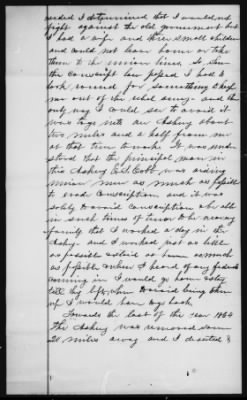 ceeded I determined that I would not
fight against the old government but
I had a wife and three small children
and could not leave home or take
them to the union lines. So when
the conscript law passed I had to
look round for something to keep
me out of the rebel army. and the
only way I could see to avoid it
was to go into an Ashery about
two miles and a half from me
at that time to work. It was under
stood that the principal man in
this Ashery E. S. Cobb was aiding
union men as much as possible
to evade conscription and it was
solely to avoid conscription & be able
in such times of terror to be near my
family that I worked a day in the
Ashery. and I worked just as little
as possible staid at home as much
as possible when I heard of any federals
coming in I would go home & stay
till they left when to avoid being taken
up I would have to go back.
Towards the last of the year 1864
The Ashery was removed some
20 miles away and I deserted &